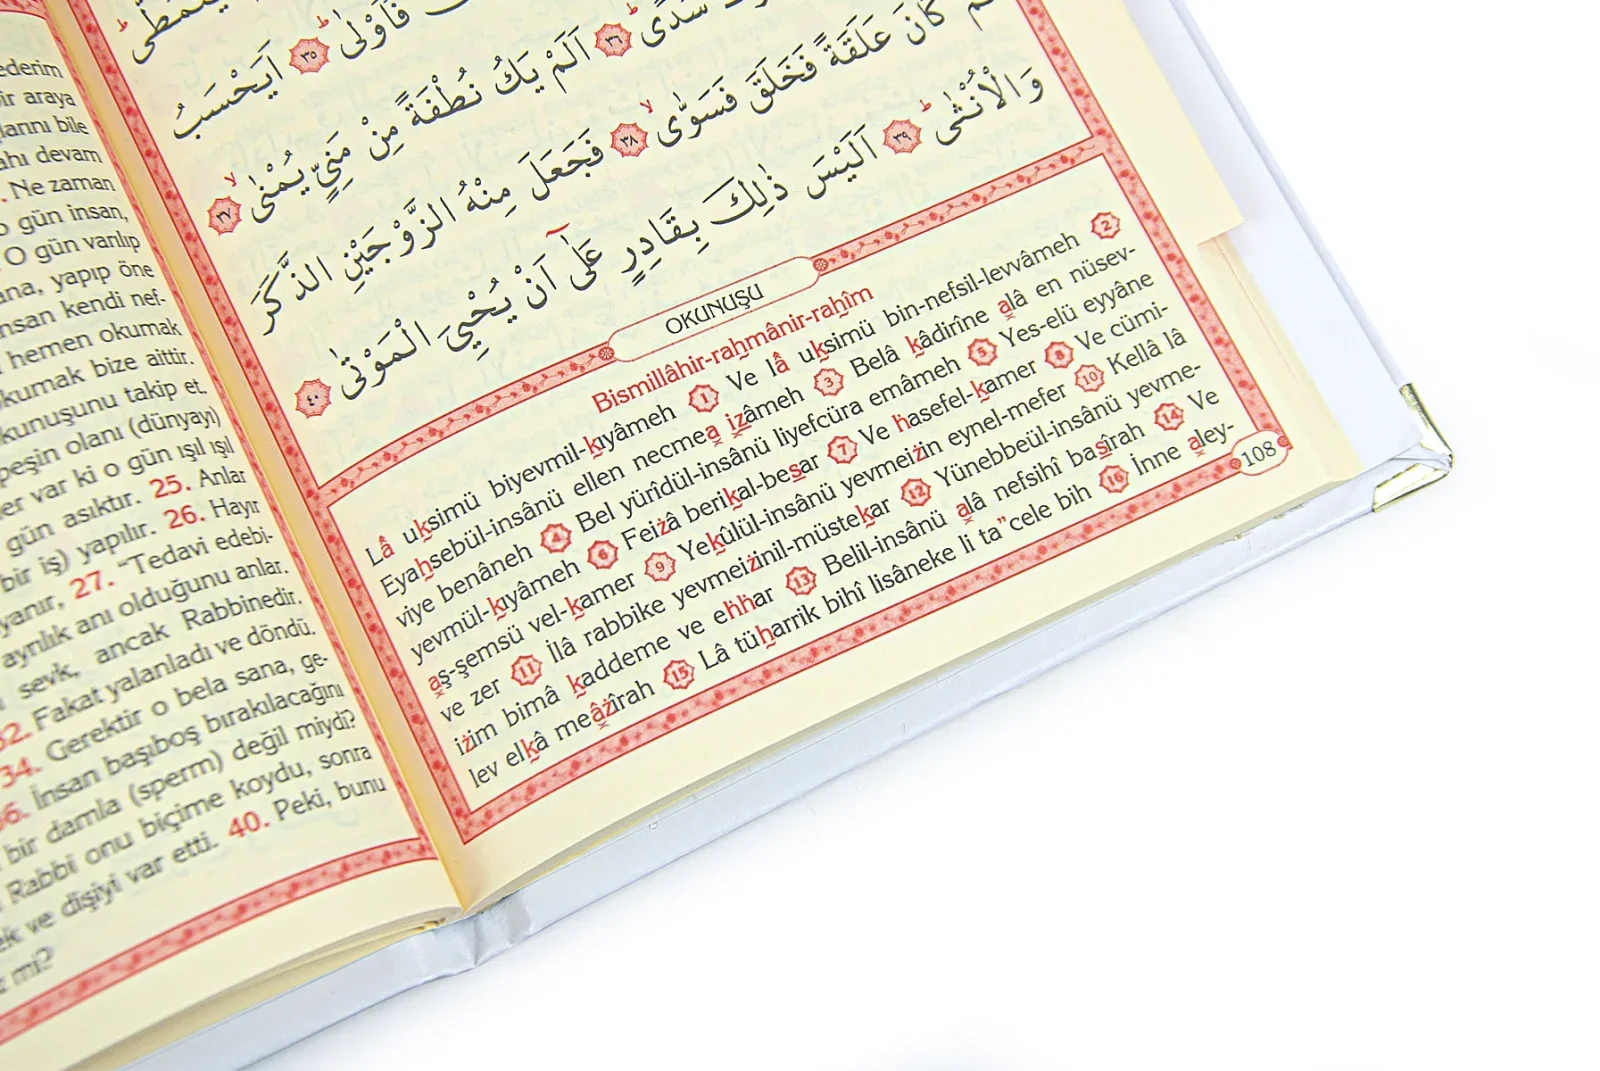 ederim
bir araya
larını bile
ahı devam
. Ne zaman
o gün insan,
O gün varılıp
ana, yapıp öne
insan kendi nef-
hemen okumak
okumak bize aittir.
kunuşunu takip et.
peşin olanı (dünyayı)
er var ki o gün ışıl ışıl
gün asıktır. 25. Anlar
bir iş) yapılır. 26. Hayır
yanır, 27. “Tedavi edebi-
ayrılık anı olduğunu anlar.
sevk, ancak Rabbinedir.
32. Fakat yalanladı ve döndü.
34. Gerektir o bela sana, ge-
36. İnsan başıboş bırakılacağını
bir damla (sperm) değil miydi?
Rabbi onu biçime koydu, sonra
ek ve dişiyi var etti. 40. Peki, bunu
mi?
فَاَوْلٰى ٣٥ اَيَحْسَبُ
سُدًى ٣٦ اَلَمْ يَكُ نُطْفَةً مِنْ مَنِيٍّ يُمْنٰى ٣٧
كَانَ عَلَقَةً فَخَلَقَ فَسَوّٰى ٣٨ فَجَعَلَ مِنْهُ الزَّوْجَيْنِ الذَّكَرَ
وَالْاُنْثٰى ٣٩ اَلَيْسَ ذٰلِكَ بِقَادِرٍ عَلٰٓى اَنْ يُحْيِيَ الْمَوْتٰى ٤٠
OKUNUŞU
Bismillâhir-rahmânir-rahîm
Lâ uksimü biyevmil-kıyâmeh 1 Ve lâ uksimü bin-nefsil-levvâmeh 2
Eyahsebül-insânü ellen necmea izâmeh 3 Belâ kâdirîne alâ en nüsev-
viye benâneh 4 Bel yürîdül-insânü liyefcüra emâmeh 5 Yes-elü eyyâne
yevmül-kıyâmeh 6 Feiżâ berikal-besar 7 Ve hasefel-kamer 8 Ve cümi-
aş-şemsü vel-kamer 9 Yekûlül-insânü yevmeiżin eynel-mefer 10 Kellâ lâ
ve zer 11 İlâ rabbike yevmeiżinil-müstekar 12 Yünebbeül-insânü yevme-
iżim bimâ kaddeme ve ehhar 13 Belil-insânü alâ nefsihî basîrah 14 Ve
lev elkâ meâżîrah 15 Lâ tüharrik bihî lisâneke li ta”cele bih 16 İnne aley-
108